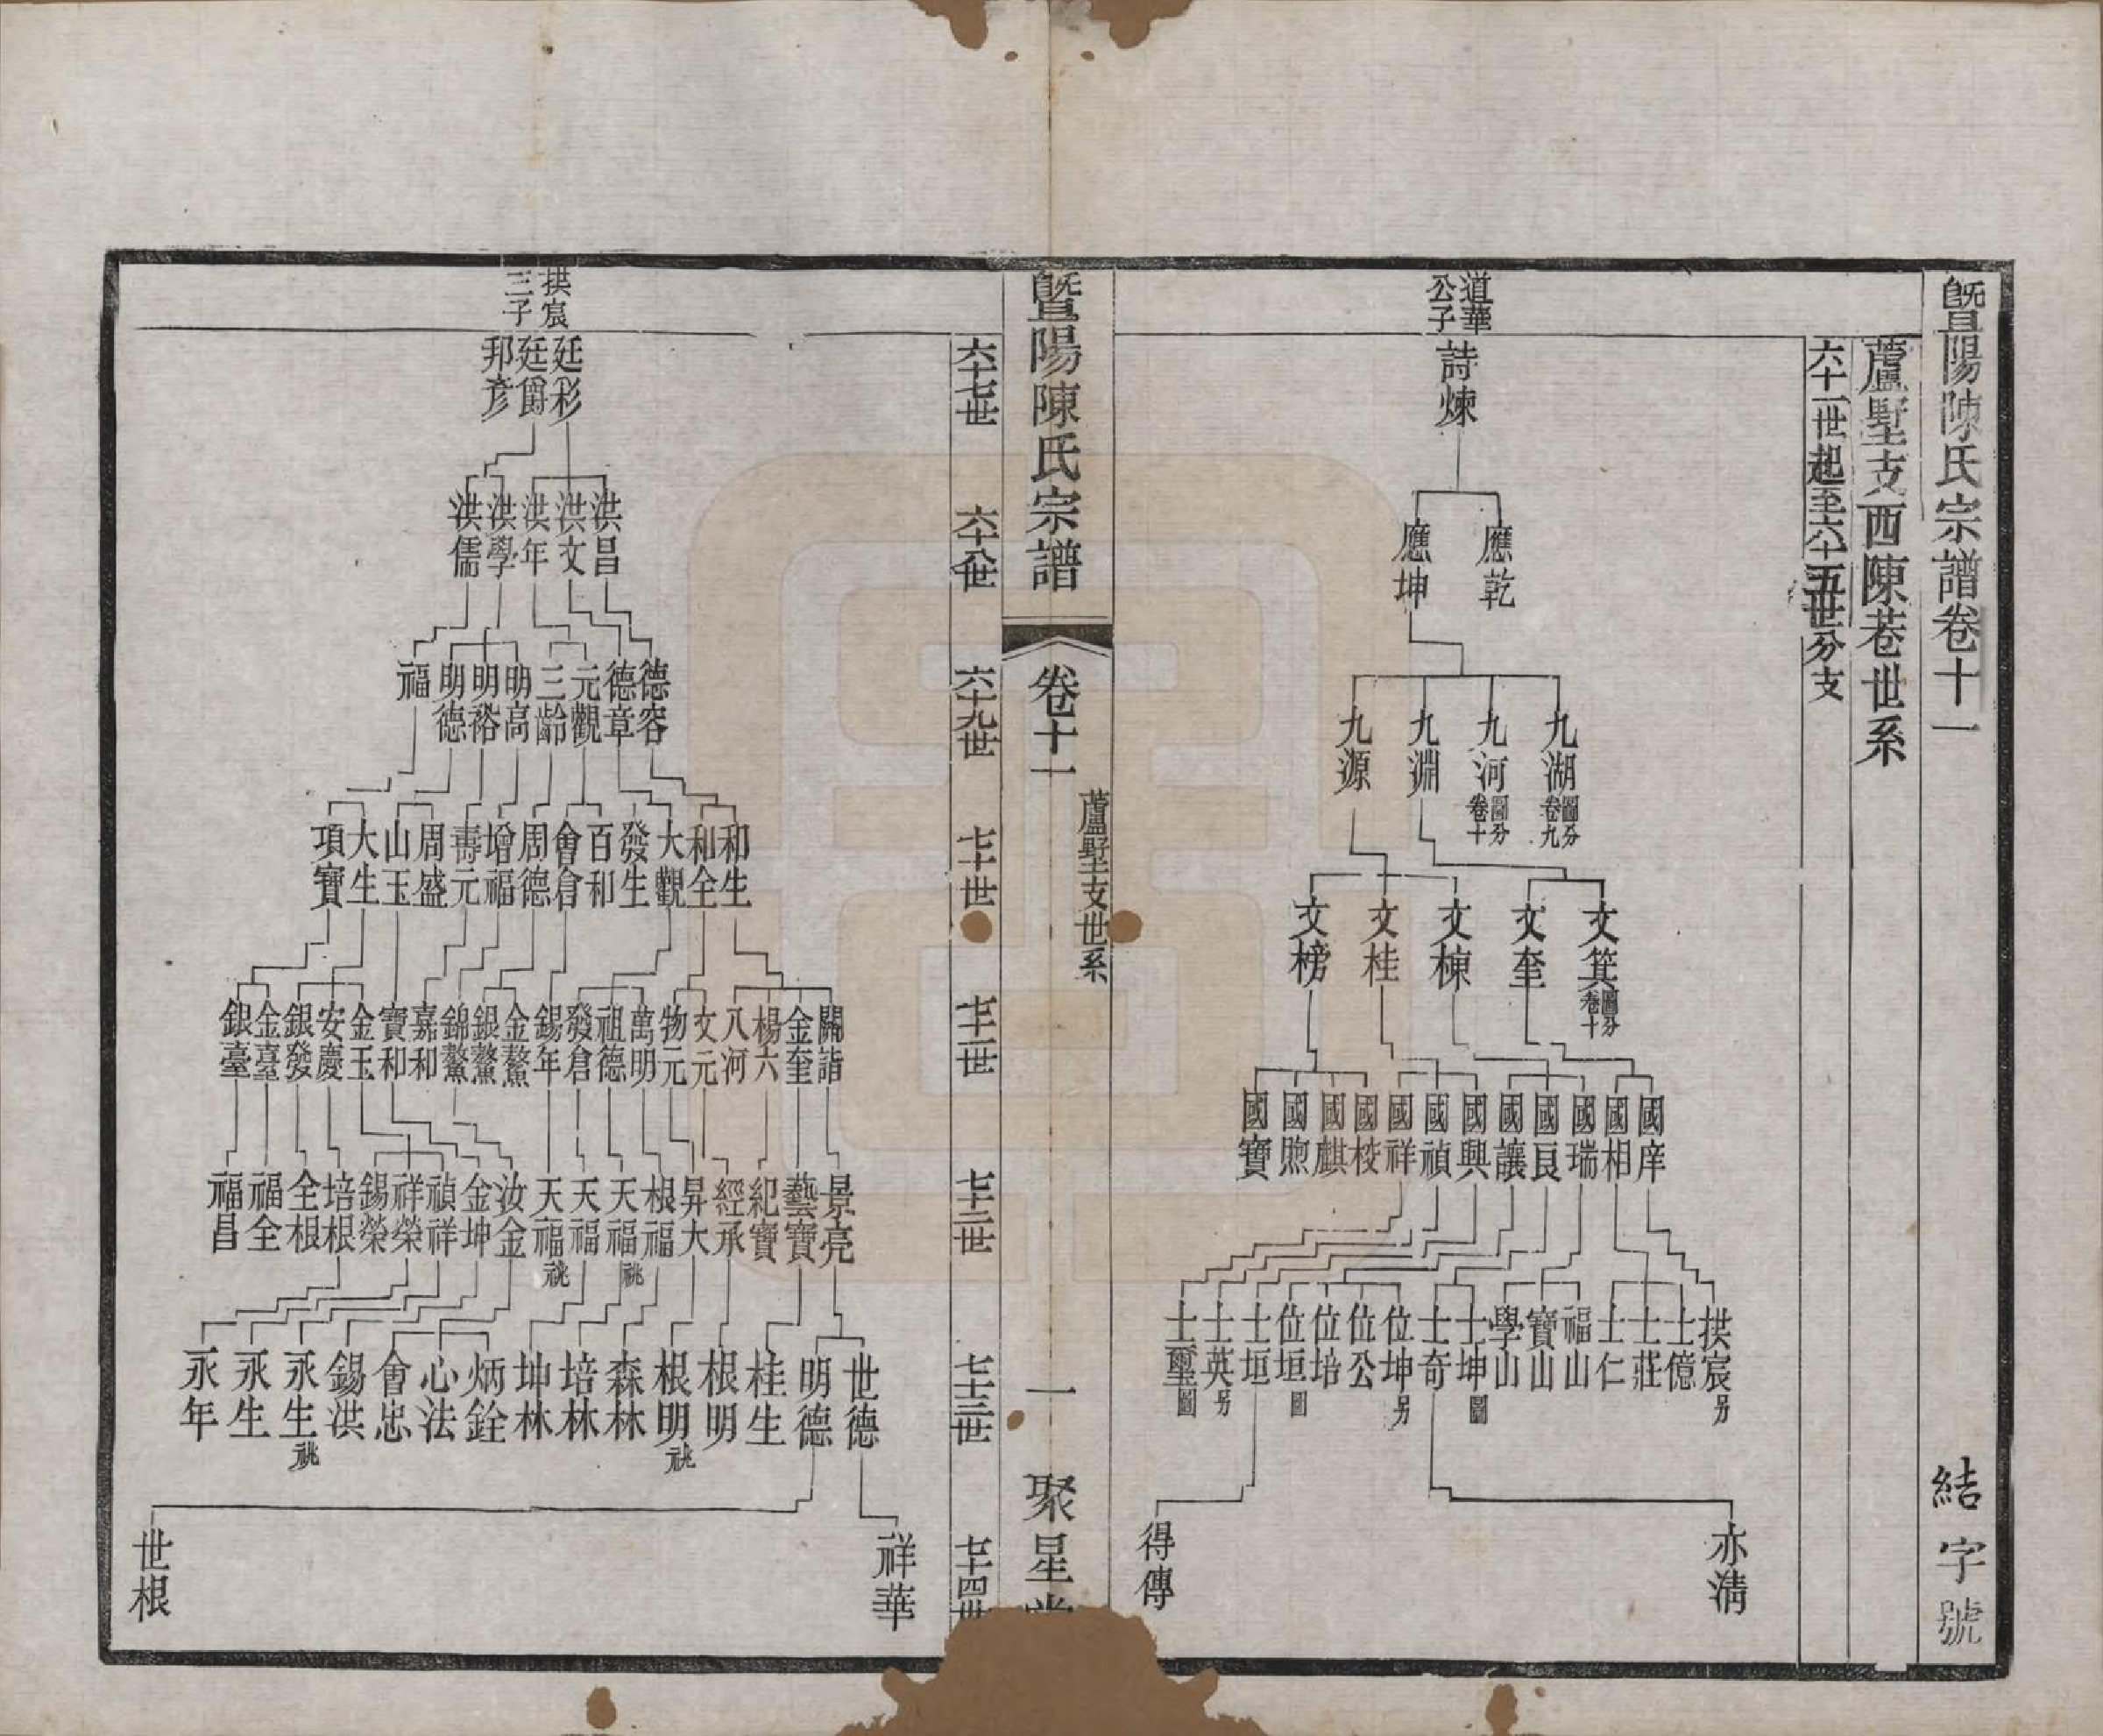 暨陽陳氏宗譜卷十一
結字號
蘆墅支西陳巷世系
六十一世起至六十五世分支
道華公子
詩煉
應乾
應坤
九湖 圖分卷九
九河 圖分卷十
九淵
九源
文箕 圖分卷十
文奎
文棟
文桂
文榜
國庠
國相
國瑞
國良
國讓
國興
國禎
國祥
國校
國麒
國煦
國寶
拱宸 另
士億
士莊
士仁
福山
寶山
學山
士坤 圖
士奇
位坤 另
位公
位培
位垣 圖
士垣
士英 另
士璽 圖
亦淸
得傳
暨陽陳氏宗譜
卷十一
蘆墅支世系
一
聚星
六十七世
六十八世
六十九世
七十世
七十一世
七十二世
七十三世
七十四世
拱宸三子
廷彩
廷爵
邦彥
洪昌
洪文
洪年
洪學
洪儒
德容
德章
元觀
三齡
明高
明裕
明德
福
和生
和全
大觀
發生
百和
會倉
周德
增福
壽元
周盛
山玉
大生
項寶
關詣
金奎
楊六
八河
文元
物元
萬明
祖德
發倉
錫年
金鰲
銀鰲
錦鰲
嘉和
寶和
金玉
安慶
銀發
金臺
銀臺
景亮
藝寶
紀寶
經承
昇大
根福
天福 祧
天福
天福 祧
汝金
金坤
禎祥
祥榮
錫榮
培根
全根
福全
福昌
世德
明德
桂生
根明
根明 祧
森林
培林
坤林
炳銓
心法
會忠
錫洪
永生 祧
永生
永年
祥華
世根